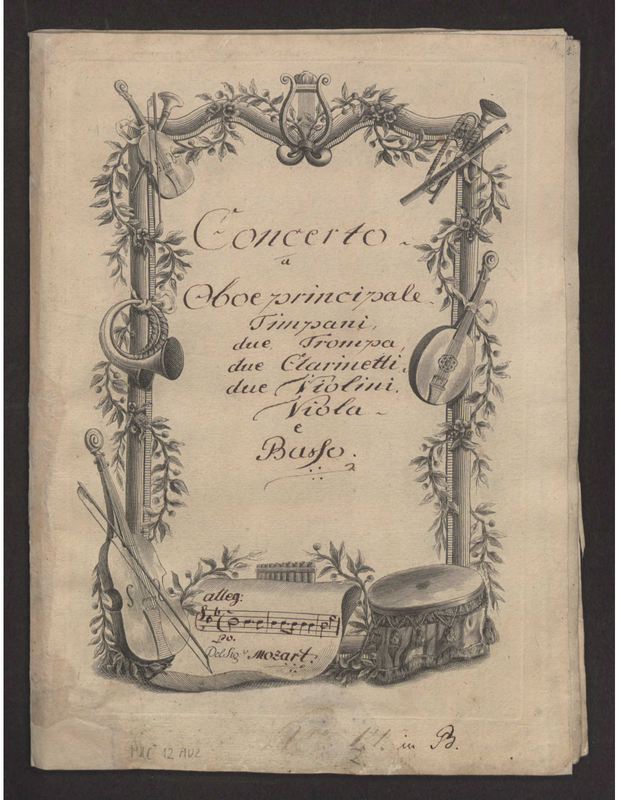 Concerto
a
Oboe principale
Timpani,
due Trompa,
due Clarinetti,
due Violini,
Viola
e
Basso.
alleg:
po.
Del Sigr Mozart.
in B.